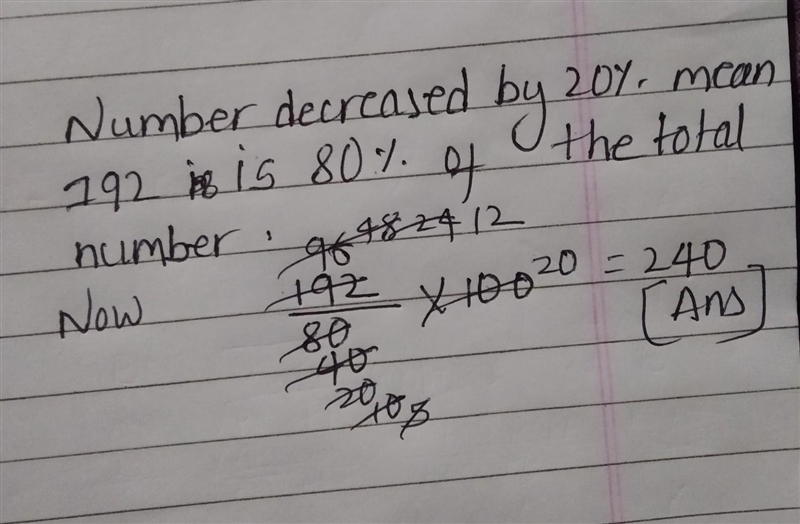 Number decreased by 20% mean
192 is is 80% of the total
number.
96 48 24 12
Now 192 × 100 20 = 240
80 [Ans]
40
20 10 5